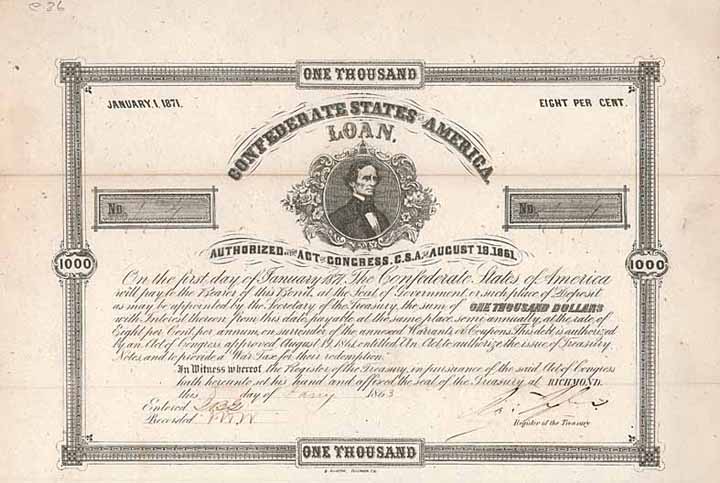 ONE THOUSAND
JANUARY, 1, 1871.
EIGHT PER CENT.
CONFEDERATE STATES OF AMERICA.
LOAN,
No.
No.
AUTHORIZED BY THE ACT OF CONGRESS, C.S.A. OF AUGUST 19, 1861.
1000
1000
On the first day of January 1871, The Confederate States of America
will pay to the Bearer of this Bond, at the Seal of Government, or such place of Deposit
as may be appointed by the Secretary of the Treasury, the sum of ONE THOUSAND DOLLARS
with Interest thereon from this date, payable at the same place semi-annually, at the rate of
Eight per Cent, per annum, on surrender of the annexed Warrants or Coupons. This debt is authorized
by an Act of Congress approved August 19, 1861, entitled An Act to authorize the issue of Treasury
Notes, and to provide a War Tax for their redemption.
In Witness whereof the Register of the Treasury, in pursuance of the said Act of Congress
hath hereunto set his hand and affixed the seal of the Treasury at RICHMOND.
this day of 1863
Entered
Recorded
Register of the Treasury
ONE THOUSAND